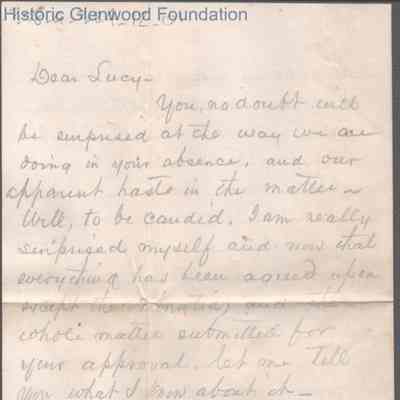 Historic Glenwood Foundation
Dear Lucy—
You, no doubt will
be surprised at the way we are
doing in your absence, and our
apparent haste in the matter—
Well, to be candid, I am really
surprised myself and now that
everything has been agreed upon
except the and the
whole matter submitted for
your approval, let me tell
you what I know about it—